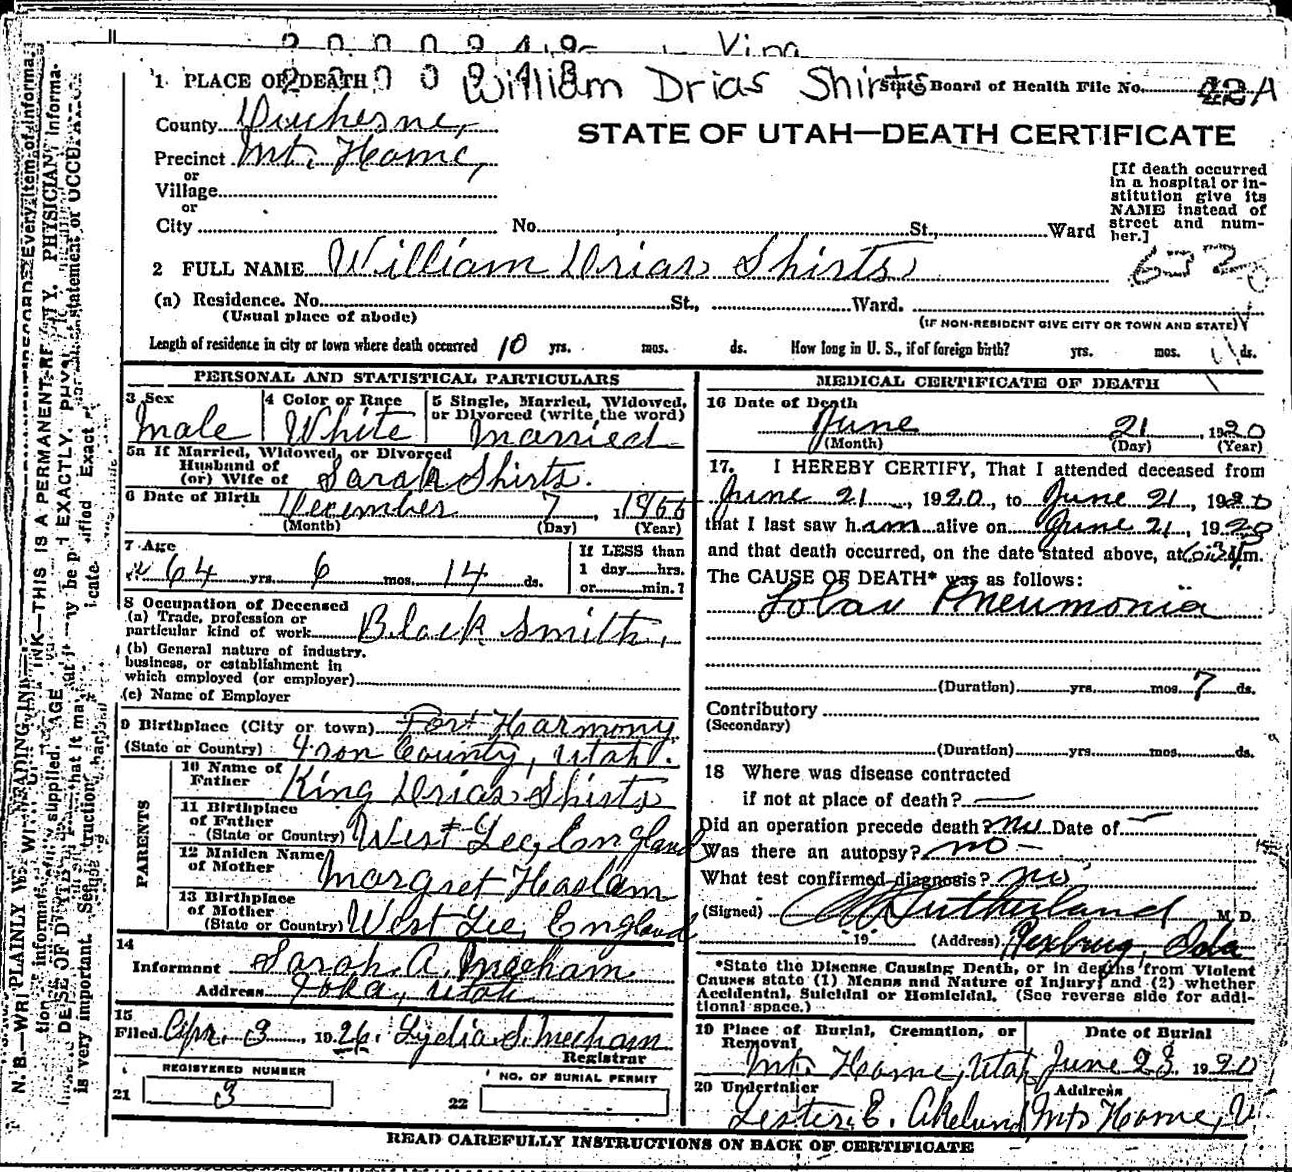 2 0 0 0 9 4 9
1 PLACE OF DEATH William Drias Shirts State Board of Health File No. 42A
County Duchesne,
STATE OF UTAH—DEATH CERTIFICATE
Precinct Mt. Home,
or
Village
or
City No. St., Ward
[If death occurred
in a hospital or in-
stitution give its
NAME instead of
street and num-
ber.]
2 FULL NAME William Drias Shirts
(a) Residence. No. St., Ward.
(Usual place of abode)
(IF NON-RESIDENT GIVE CITY OR TOWN AND STATE)
Length of residence in city or town where death occurred 10 yrs. mos. ds. How long in U. S., if of foreign birth? yrs. mos. ds.
PERSONAL AND STATISTICAL PARTICULARS
3 Sex Male
4 Color or Race White
5 Single, Married, Widowed,
or Divorced (write the word)
Married
5a If Married, Widowed, or Divorced
Husband of
(or) Wife of Sarah Shirts.
6 Date of Birth December 7, 1866
(Month) (Day) (Year)
7 Age
64 yrs. 6 mos. 14 ds.
If LESS than
1 day hrs.
or min.?
8 Occupation of Deceased
(a) Trade, profession or
particular kind of work Black Smith,
(b) General nature of industry,
business, or establishment in
which employed (or employer)
(c) Name of Employer
9 Birthplace (City or town) Fort Harmony
(State or Country) Iron County, Utah.
PARENTS
10 Name of
Father King Drias Shirts
11 Birthplace
of Father
(State or Country) West Lee, England
12 Maiden Name
of Mother Margret Haslam
13 Birthplace
of Mother
(State or Country) West Lee, England
14
Informant Sarah. A. Mecham
Address Ioka, Utah
15
Filed Apr. 3, 1926. Lydia S. Mecham
Registrar
REGISTERED NUMBER
21 3
NO. OF BURIAL PERMIT
22
MEDICAL CERTIFICATE OF DEATH
16 Date of Death
June 21, 1920
(Month) (Day) (Year)
17. I HEREBY CERTIFY, That I attended deceased from
June 21, 1920, to June 21, 1920
that I last saw h am alive on June 21, 1920
and that death occurred, on the date stated above, at m.
The CAUSE OF DEATH* was as follows:
Lobar Pneumonia
(Duration) yrs. mos. 7 ds.
Contributory
(Secondary)
(Duration) yrs. mos. ds.
18 Where was disease contracted
if not at place of death? —
Did an operation precede death? no Date of —
Was there an autopsy? no —
What test confirmed diagnosis? no
(Signed) Sutherland M. D.
19 (Address) Rexburg, Ida
*State the Disease Causing Death, or in deaths from Violent
Causes state (1) Means and Nature of Injury; and (2) whether
Accidental, Suicidal or Homicidal. (See reverse side for addi-
tional space.)
19 Place of Burial, Cremation, or
Removal
Mt. Home, Utah
Date of Burial
June 23, 1920
20 Undertaker
Lester E.
Address
Mt. Home, U
READ CAREFULLY INSTRUCTIONS ON BACK OF CERTIFICATE